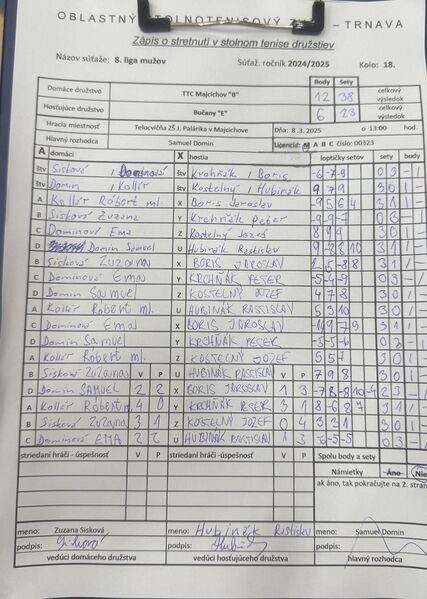 OBLASTNÝ STOLNOTENISOVÝ Z – TRNAVA
Zápis o stretnutí v stolnom tenise družstiev
Názov súťaže: 8. liga mužov Súťaž. ročník 2024/2025 Kolo: 18.
Body Sety
Domáce družstvo TTC Majcichov "B" 12 38 celkový výsledok
Hosťujúce družstvo Bučany "E" 6 23 celkový výsledok
Hracia miestnosť Telocvičňa ZŠ J. Palárika v Majcichove Dňa: 8.3.2025 o 13:00 hod.
Hlavný rozhodca Samuel Domin Licencia: M A B C číslo: 00323
A domáci X hostia loptičky setov sety body
štv Sisková / Dominová štv Krchňák / Boris -6-7-9 03 -
štv Domin / Kollár štv Kostelný / Hubinák 979 30 1
A Kollár Róbert ml. X Boris Jaroslav -9564 31 1
B Sisková Zuzana Y Krchňák Peter -9-9-7 03 -
C Dominová Ema Z Kostelný Jozef 894 30 1
D Domin Samuel U Hubinák Rastislav 31 1
B Sisková Zuzana X BORIS JAROSLAV 31 1
C Dominová Ema Y KRCHŇÁK PETER -5-4-9 03 -
D Domin Samuel Z KOSTELNÝ JOZEF 478 30 1
A Kollár Róbert ml. U HUBINÁK RASTISLAV 5310 30 1
C Dominová Ema X BORIS JAROSLAV 31 1
D Domin Samuel Y KRCHŇÁK PETER -5-5-6 03 -
A Kollár Róbert ml. Z KOSTELNÝ JOZEF 557 30 1
B Sisková Zuzana V P U HUBINÁK RASTISLAV V P 798 30 1
D Domin SAMUEL 2 2 X BORIS JAROSLAV 1 3 23 -
A Kollár Róbert ml. 4 0 Y KRCHŇÁK PETER 3 1 8-687 31 1
B Sisková Zuzana 3 1 Z KOSTELNÝ JOZEF 0 4 331 30 1
C Dominová EMA 2 2 U HUBINÁK RASTISLAV 1 3 -6-5-5 03 -
striedaní hráči - úspešnosť V P striedaní hráči - úspešnosť V P Spolu body a sety
Námietky Áno Nie
ak áno, tak pokračujte na 2. stran
meno: Zuzana Sisková meno: Hubinák Rastislav meno: Samuel Domin
podpis: podpis: podpis:
vedúci domáceho družstva vedúci hosťujúceho družstva hlavný rozhodca